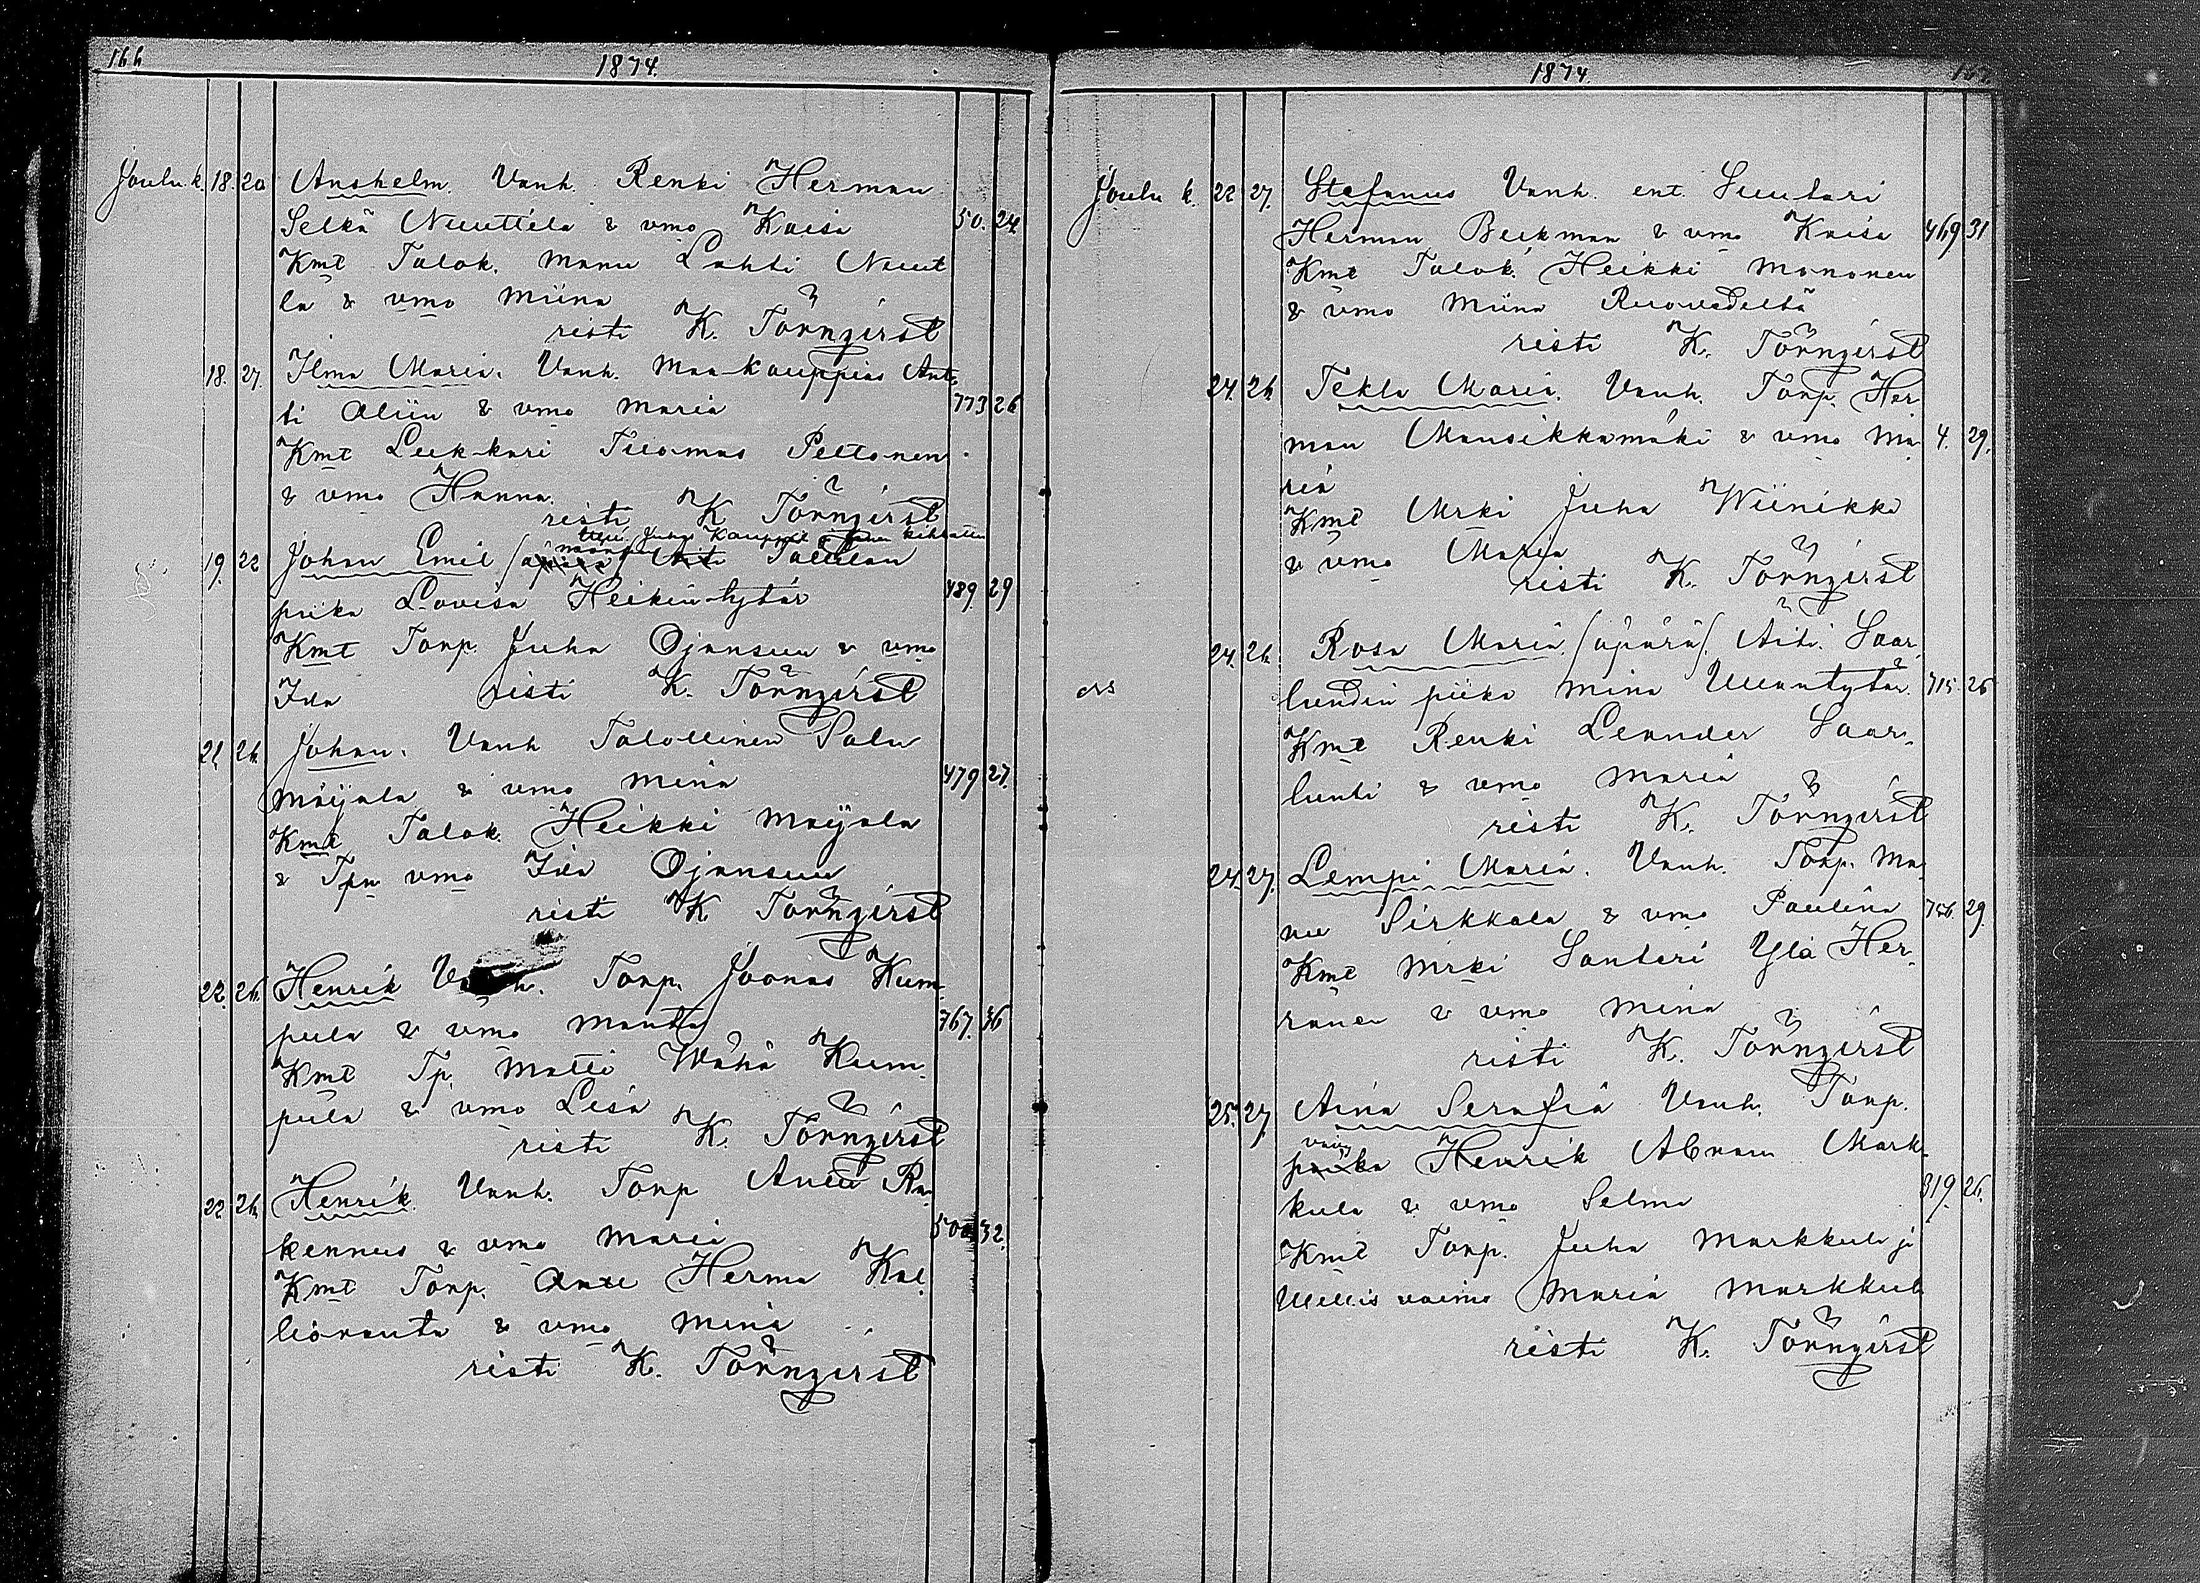 166
1874.
Joulu k. 18. 20 Anshelm. Vanh. Renki Herman
Selkä Nuuttila & vmo Kaisa 50. 24.
Kmt Talok. Manu Lahti Nuut
la & vmo Miina
risti K. Törnqvist
18. 27. Ilma Maria. Vanh. Maa-kauppias Ant-
ti Aliin & vmo Maria 773 26
Kmt Lukkari Tuomas Peltonen
& vmo Hanna.
risti K Törnqvist
19. 22 Johan Emil /äpärä/ Äiti
piika Lovisa Heikintytär 489. 29
Kmt Torp. Juha Ojansuu & vmo
Ida risti K. Törnqvist
21. 26. Johan. Vanh Talollinen Salu
Mäijala & vmo Mina 479 27.
Kmt Talok. Heikki Maijala
& Tpn vmo Ida Ojansuu
risti K Törnqvist
22. 26. Henrik Vanh. Torp. Joonas Kum-
pula & vmo Manta 767. 36
Kmt Tp. Matti Wähä Kum-
pula & vmo Lisa
risti K. Törnqvist
22 26. Henrik. Vanh. Torp Antti Ra-
kennus & vmo Maria 32.
Kmt Torp. Herma Kal
lioranta & vmo Mina
risti K. Törnqvist
1874.
Joulu k. 22 27. Stefanus Vanh. ent. Suutari
Herman Beckman & vmo Kaisa 469 31
Kmt Talok. Heikki Mononen
& vmo Miina Ruovedeltä
risti K. Törnqvist
24. 26. Tekla Maria. Vanh. Torp. Her
man Mansikkamäki & vmo Ma 4. 29.
ria
Kmt Mrki Juha Wiinikka
& vmo Maria
risti K. Törnqvist
24. 26. Rosa Maria. /äpärä/. Äiti. Saar-
lundin piika Mina Umantytär. 715. 26
Kmt Renki Leander Saar-
lunti & vmo Maria
risti K. Törnqvist
24. 27. Lempi Maria. Vanh. Torp. Ma-
nu Sirkkala & vmo Paulina 756. 29.
Kmt Mrki Santeri Ylä Her-
ranen & vmo Mina
risti K. Törnqvist
25. 27. Aina Serafia Vanh. Torp.
vävy
poika Henrik Abram Mark-
kula & vmo Selma 319. 26.
Kmt Torp. Juha Markkula ja
vaimo Maria Markkula
risti K. Törnqvist